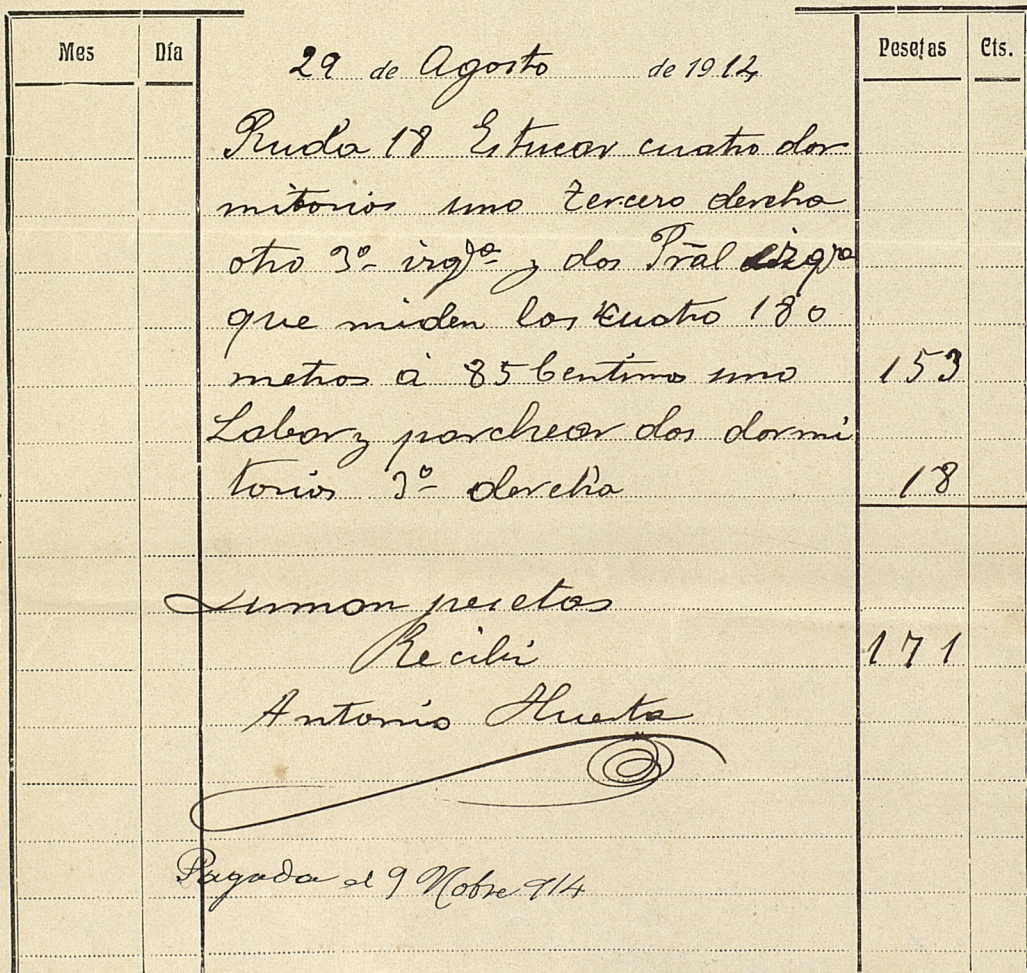 Mes Día Pesetas Cts.
29 de Agosto de 1914
Ruda 18 Estucar cuatro dor
mitorios uno tercero derecha
otro 3º izqdª y dos Pral izqda
que miden los cuatro 180
metros à 85 Centimos uno 153
Labar y parchear dos dormi
torios 3º derecha 18
Suman pesetas
Recibí 171
Antonio Huerta
Pagada el 9 Nobre 914